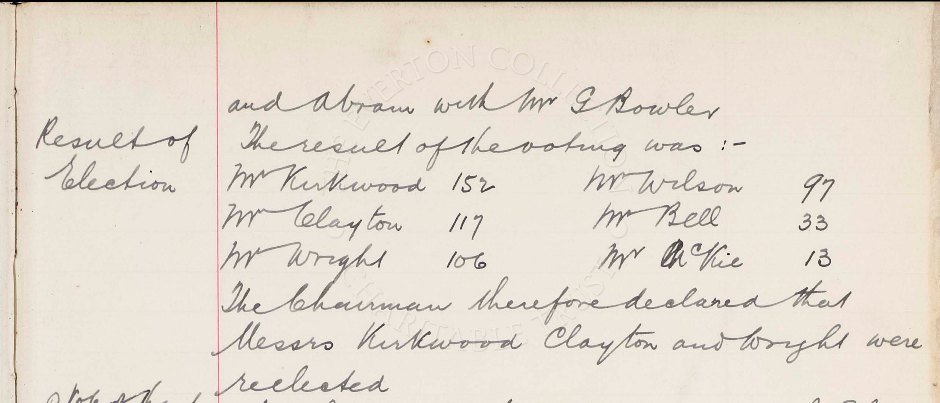 and Abram with Mr G Bowler
Result of
The result of the voting was :-
Election
Mr Kirkwood 152 Mr Wilson 97
Mr Clayton 117 Mr Bell 33
Mr Wright 106 Mr McKie 13
The Chairman therefore declared that
Messrs Kirkwood Clayton and Wright were
reelected